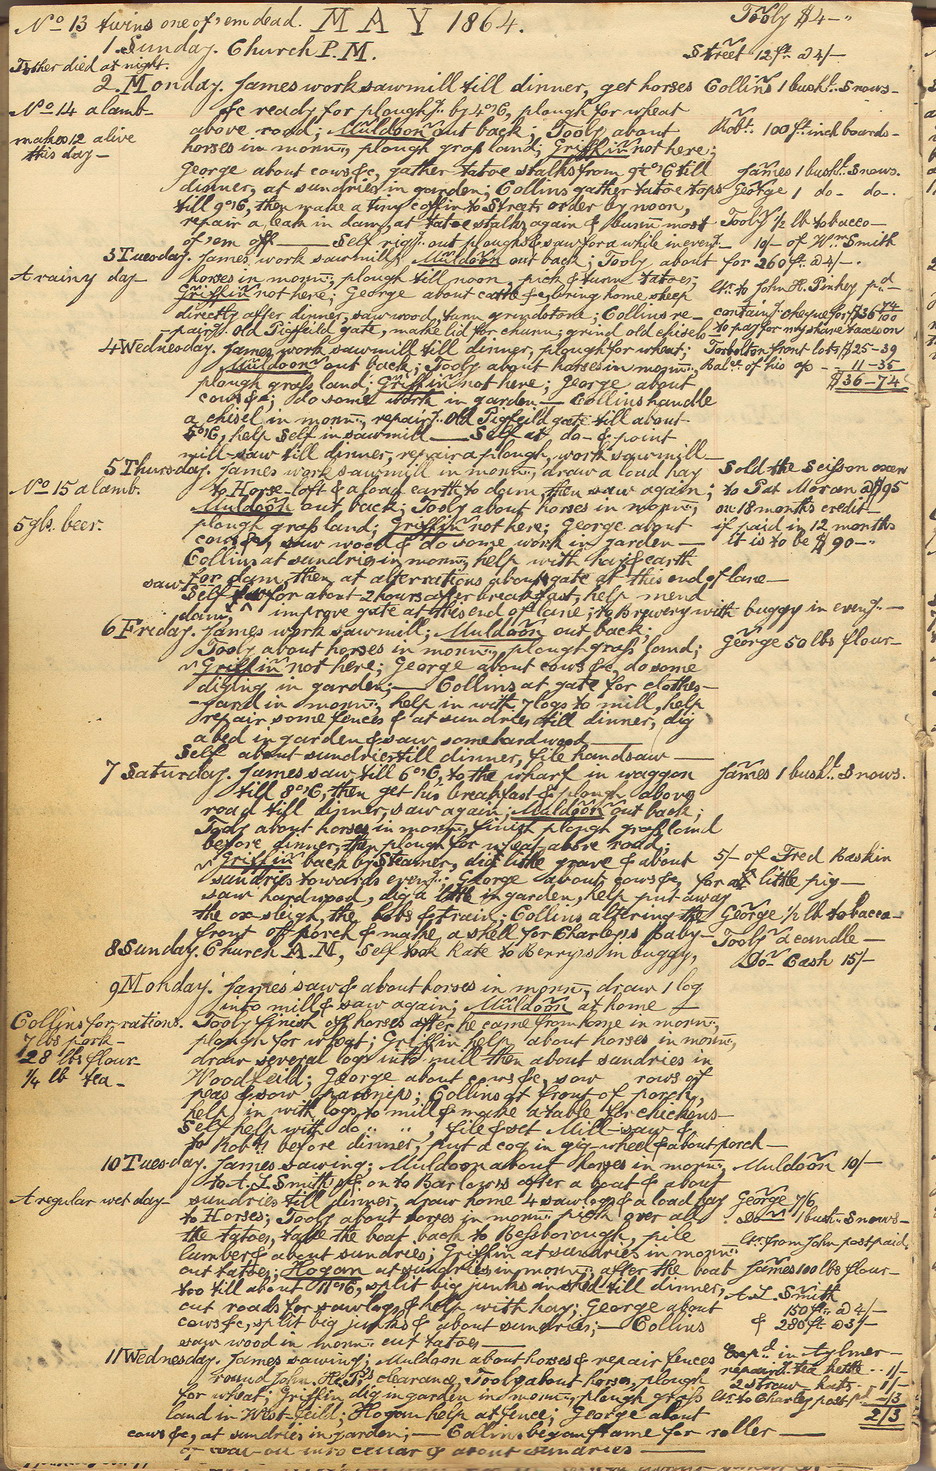 No 13 twins one of 'em dead. MAY 1864. Tooly $4-"
1 Sunday. Church P.M. Street 12 ft @ 4/-
Father died at night.
2 Monday. James work sawmill till dinner, get horses Collins 1 bushl. Snows-
No 14 a lamb- &c ready for ploughg. by 4 o'6, plough for wheat
makes 12 alive above road; Muldoon out back; Tooly about Robt. 100 ft inch boards-
this day- horses in mornn, plough grass land; Griffin not here;
George about cows &c, gather tatoe stalks from 9 till James 1 bushl. Snows.
dinner, at sundries in garden; Collins gather tatoe tops George 1 do- do-
till 9 o'6, then make a tiny coffin to Streets order by noon,
repair a leak in dam, at tatoe stalks again & burn most Tooly ½ lb tobacco-
of 'em off- Self rigg. out ploughs & saw for a while in eveng- 10/- of Wm Smith
3 Tuesday. James work sawmill; Muldoon out back; Tooly about for 260 ft @ 4/-.
A rainy day- horses in mornn, plough till noon, pick & turn tatoes;
Griffin not here; George about cattle & bring home sheep Ltr. to John H. Pinhey pd-
directly after dinner, saw wood, turn grindstone; Collins re- containg. cheque for $36 74/100
pairg. Old Pigfeild gate, make lid for churn; grind old chisel to pay for my share taxes on
4 Wednesday. James work sawmill till dinner, plough for wheat; Torbolton front lots $25-39
Muldoon out back; Tooly about horses in mornn, Balce. of his - 11-35
plough grass land; Griffin not here; George about $36-74
cows &c; do some work in garden- Collins handle
a chisel in mornn, repairg. Old Pigfeild gate till about
5 o'6, help Self in sawmill- Self at do- & point
mill-saw till dinner, repair a plough, work sawmill-
5 Thursday. James work sawmill in mornn, draw a load hay Sold the Scisson oxen
No 15 a lamb. to Horse-loft & a load earth to dam, then saw again; to Pat Moran @ $95
Muldoon out back; Tooly about horses in mornn, on 18 months credit-
5 gls. beer. plough grass land; Griffin not here; George about if paid in 12 months
cows &c, saw wood & do some work in garden- it is to be $90-"
Collins at sundries in mornn, help with hay & earth
for dam, then at alterrations about gate at this end of lane-
Self saw for about 2 hours after breakfast, help mend
dam, improve gate at this end of lane; to Brewery with buggy in eveng.-
6 Friday. James work sawmill; Muldoon out back;
Tooly about horses in mornn, plough grass land; George 50 lbs flour-
Griffin not here; George about cows &c, do some
diging in garden;- Collins at gate for clothes-
-yard in mornn, help in with 7 logs to mill, help
repair some fences & at sundries till dinner, dig
a bed in garden & saw some hardwood
Self about sundries till dinner, file handsaw-
7 Saturday. James saw till 6 o'6, to the wharf in waggon James 1 bushl. Snows.
till 8 o'6, then get his breakfast & plough above
road till dinner, saw again; Muldoon out back;
Tooly about horses in mornn, finish plough grass land
before dinner, then plough for wheat above road;
Griffin back by Steamer, dig little grave & about 5/- of Fred Baskin
sundries towards eveng; George about cows &c, for a little pig-
saw hardwood, dig a little in garden, help put away
the ox-sleigh, the bobs & train; Collins altering the George ½ lb tobacco-
front of porch & make a shell for Charley's Baby- Tooly a candle-
8 Sunday. Church A.M, Self took Kate to Berry's in buggy, Do- Cash 15/-
9 Monday. James saw & about horses in mornn, draw 1 log
into mill & saw again; Muldoon at home-
Collins for rations. Tooly finish off horses after he came from home in mornn,
7 lbs pork- plough for wheat; Griffin help about horses in mornn,
28 lbs flour- draw several logs into mill then about sundries in
¼ lb tea- Woodfeild; George about cows &c, sow rows of
peas & sow parsneps; Collins at front of porch,
help in with logs to mill & make a table for chickens-
Self help with do " ", file & set Mill-saw &
to Rob's before dinner, put a cog in gig-wheel & about porch-
10 Tuesday. James sawing; Muldoon about horses in mornn, Muldoon 10/-
to A.L Smith's &c on to Barlows after a boat & about
A regular wet day- sundries till dinner, draw home 4 sawlogs & a load hay George 7/6
to Horses; Tooly about horses in mornn pick over all Do- 1 bush. Snows-
the tatoes, take the boat back to Bessborough, pile Ltr. from John post paid,
lumber & about sundries; Griffin at sundries in mornn
cut tatoes; Hogan at sundries in mornn after the boat James 100 lbs flour-
too till about 11 o'6, split big junks in shed till dinner, A.L. Smith
cut roads for sawlogs & help with hay; George about 150 ft. @ 4/-
cows &c, split big junks & about sundries;- Collins & 280 ft @ 5/-
saw wood in mornn cut tatoes-
11 Wednesday. James sawing; Muldoon about horses & repair fences Expd. in Aylmer-
round John H. P's clearance; Tooly about horses, plough repairg. tea kettle .. 1/-
for wheat; Griffin dig in garden in mornn, plough grass 2 straw hats. - 1/-
land in West-feild; Hogan help at fence; George about Ltr. to Charley post pd /3
cows &c, at sundries in garden;- Collins began frame for roller- 2/3